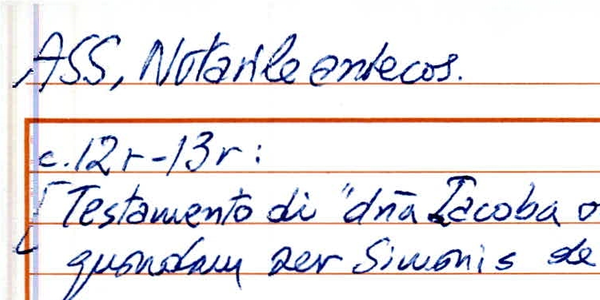 ASS, Notarile antecos.
c.12r-13r:
[Testamento di "dña Iacoba
quondam ser Simonis de